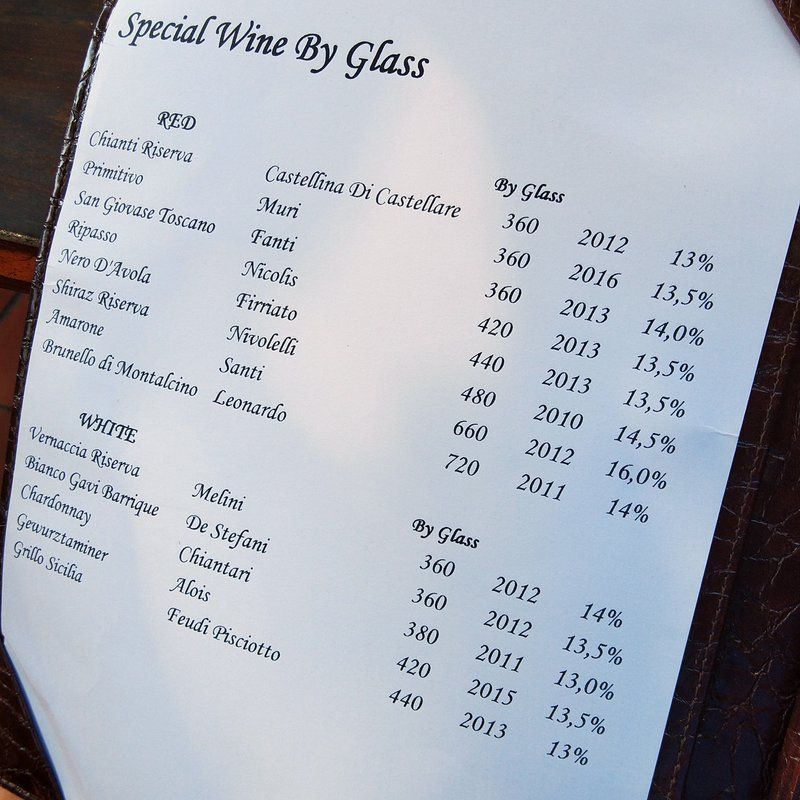 Special Wine By Glass
RED By Glass
Chianti Riserva Castellina Di Castellare 360 2012 13%
Primitivo Muri 360 2016 13,5%
San Giovase Toscano Fanti 360 2013 14,0%
Ripasso Nicolis 420 2013 13,5%
Nero D'Avola Firriato 440 2013 13,5%
Shiraz Riserva Nivolelli 480 2010 14,5%
Amarone Santi 660 2012 16,0%
Brunello di Montalcino Leonardo 720 2011 14%
WHITE By Glass
Vernaccia Riserva Melini 360 2012 14%
Bianco Gavi Barrique De Stefani 360 2012 13,5%
Chardonnay Chiantari 380 2011 13,0%
Gewurztaminer Alois 420 2015 13,5%
Grillo Sicilia Feudi Pisciotto 440 2013 13%